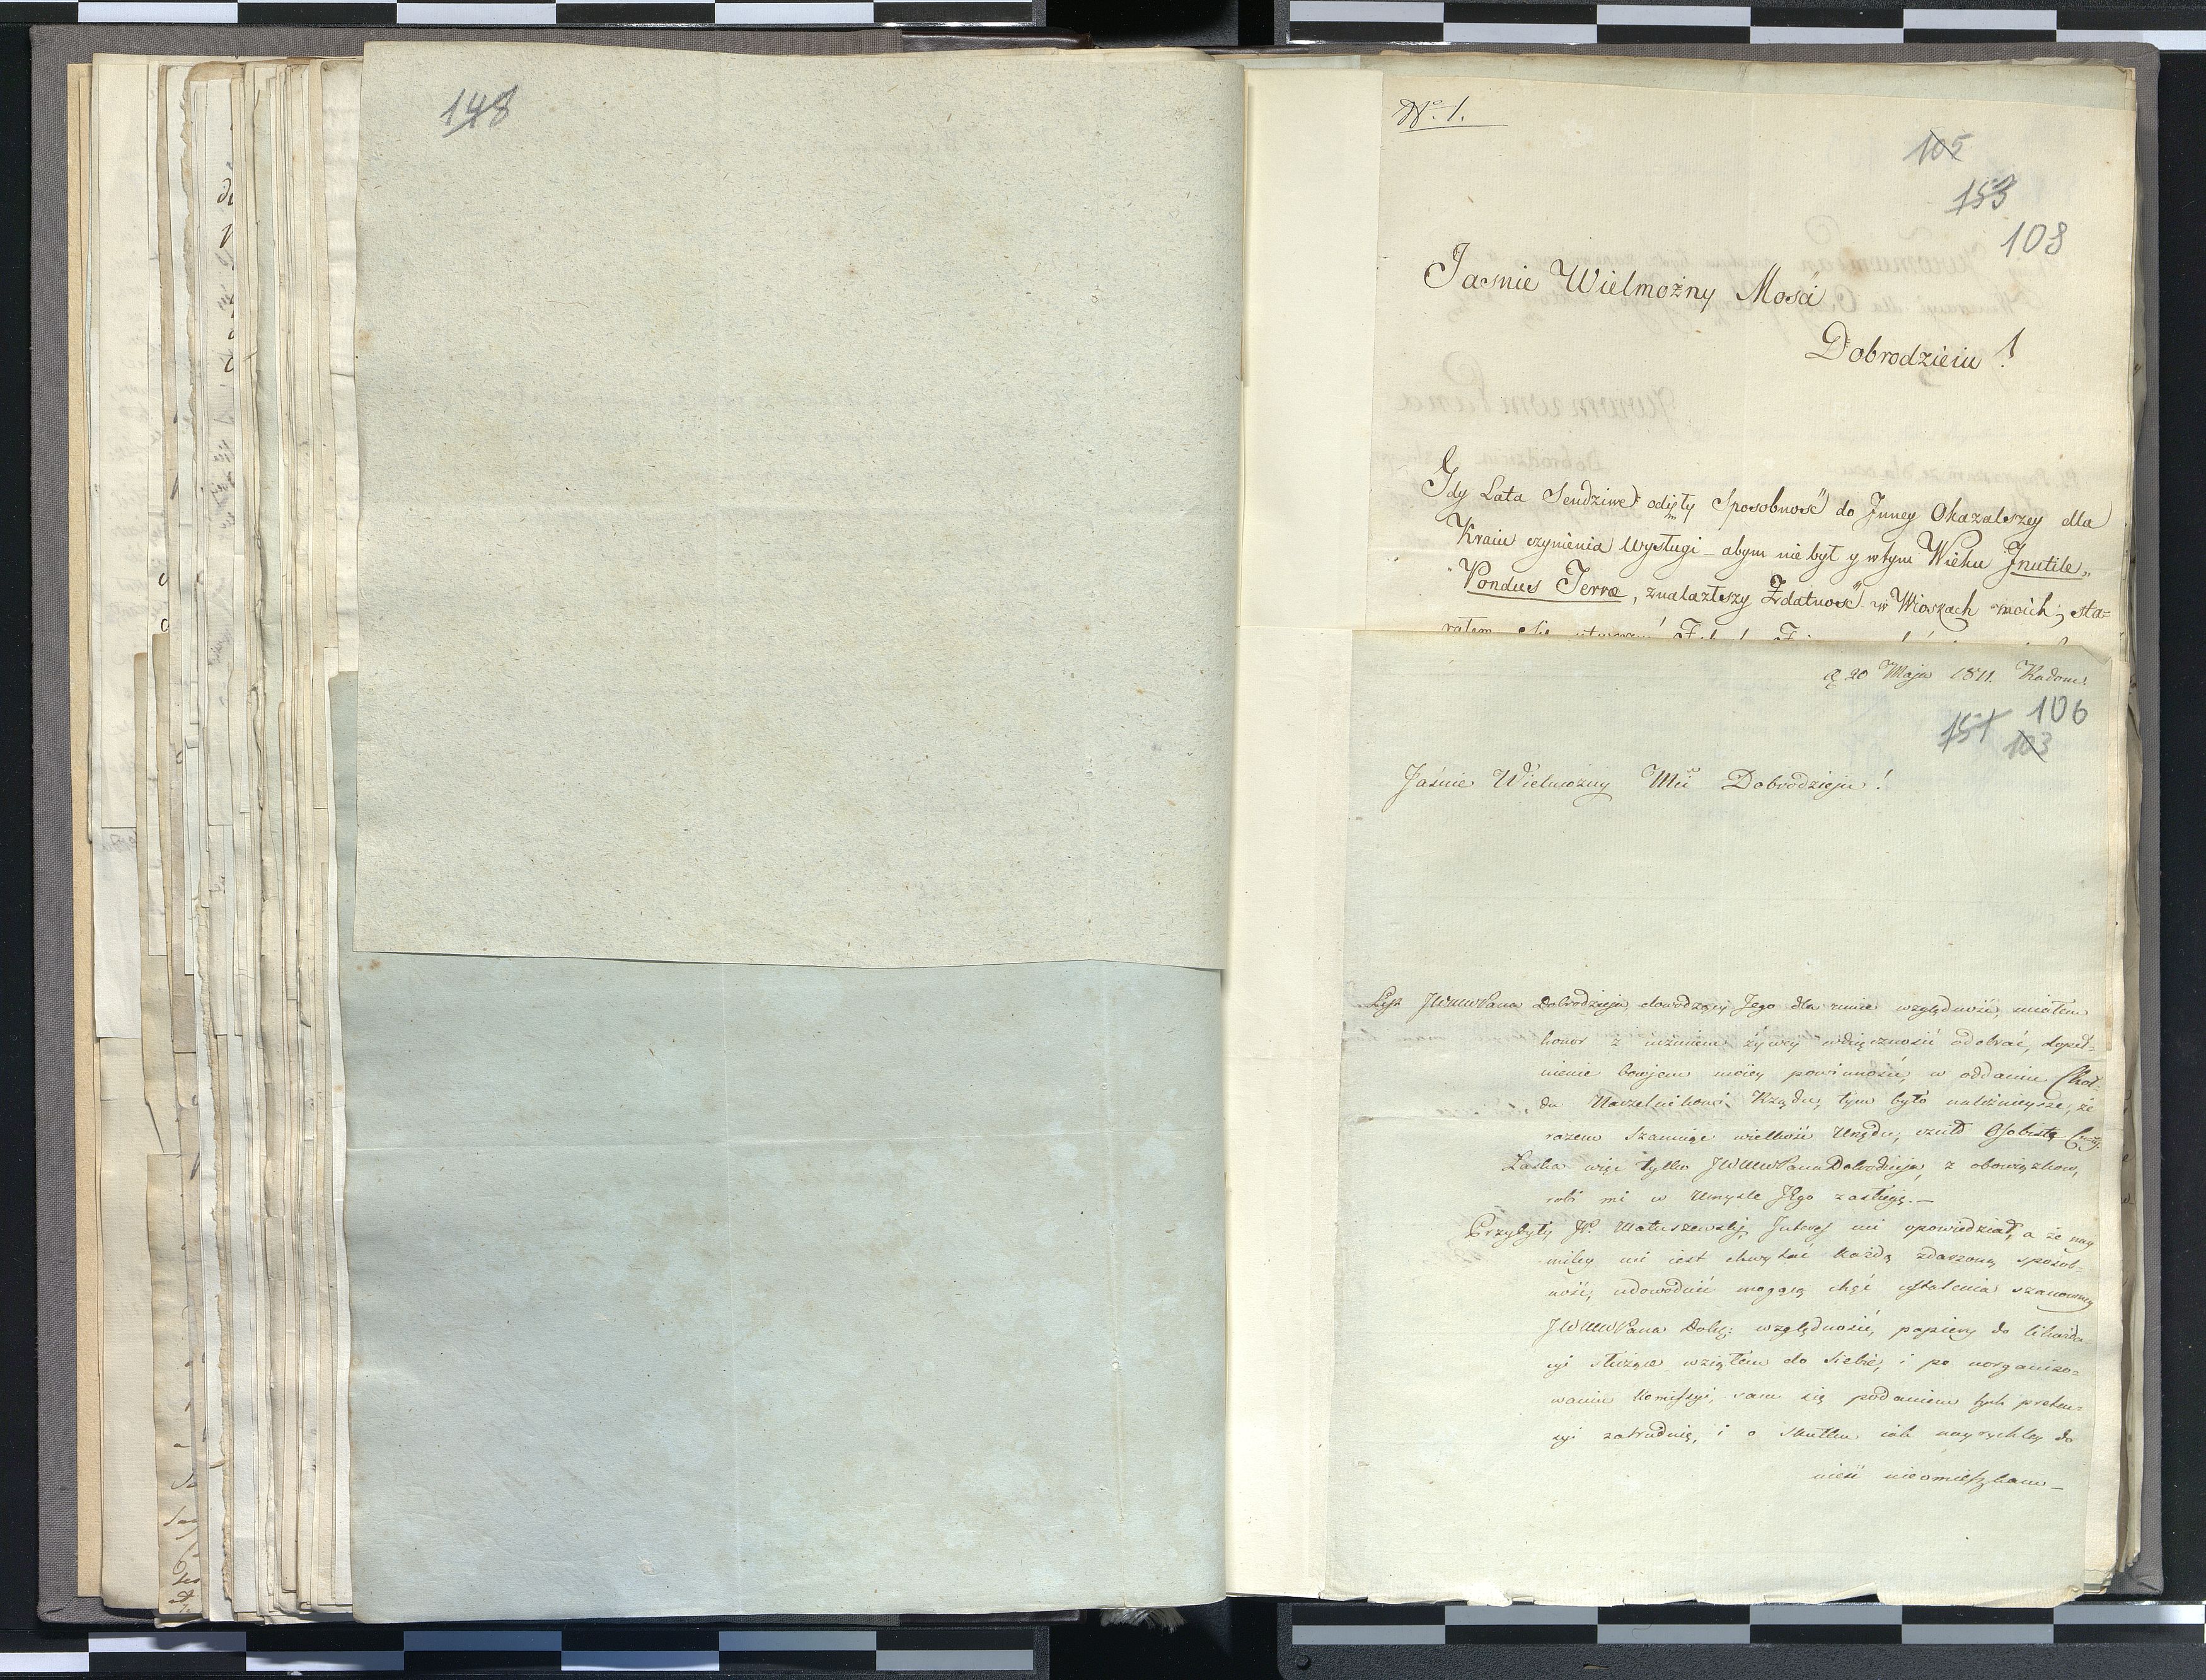 148
N<sup>o</sup>. 1.
105
153
108
Jasnie Wielmożny Mosci
Dobrodzieiu!
Gdy Lata Sendziwe odięły Sposobność do Jnney Okazalszey dla
Kraiu czynienia Wysługi – abym nie był y w tym Wieku Jnutile
Pondus Terræ, znalazłszy Zdatność w Wioskach moich, sta-
d 20 Maja 1811. Radom.
106
151
103
Jaśnie Wielmożny Mci Dobrodzieju!
List JWWPana Dobrodzieja, dowodzący Jego dla mnie względność, miałem
honor z uczuciem żywey wdzięczności odebrać, dopeł-
nienie bowjem moiey powinności, w oddaniu Choł-
du Naczelnikowi Rządu, tym było należnieysze, że
razem Szanuiąc wielkość Urzędu, czuił Osobistą
Łaska więc tylko JWWPana Dobrodzieja, z obowiązków,
robi mi w Umyśle Jego zasługę. —
Przybyły JP. Matuszewski, Jnteres mi opowiedział, a że nay
miley mi iest chwytać każdą zdarzoną sposob-
ność, udowodnić mogącą chęć ustalenia szanowney
JWWPana Dobr: względności, papiery do likwida-
cyi służące wziąłem do siebie, i po uorganizo-
waniu Komissyi, sam się podaniem tych preten-
syi zatrudnię, i o skutku iak nayrychley do
nieść nieomieszkam —